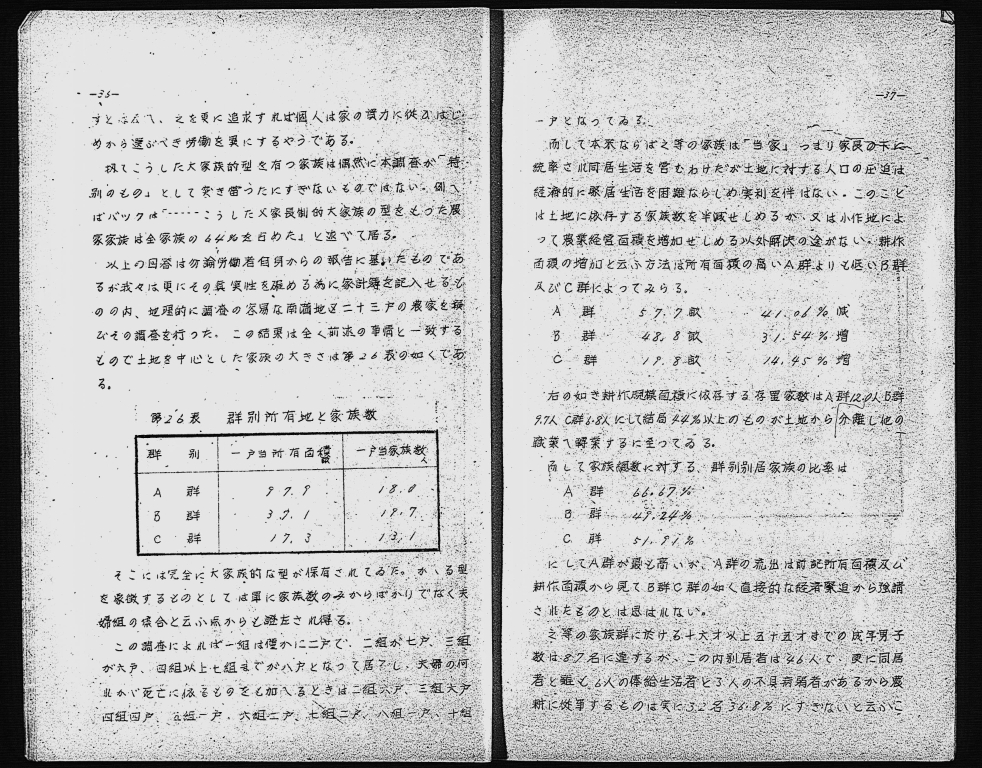 —36—
之を更に追求すれば個人は家の資力に従ひはじ
めから選ぶべき労働を異にするやうである。
扨てこうした大家族的型を有つ家族は偶然に本調査が「特
別のもの」として突き當つたにすぎないものではない。例へ
ばバックは「‥‥‥こうした父家長制的大家族の型をもつた農
家家族は全家族の64%を占めた」と述べて居る。
以上の回答は勿論労働者自身からの報告に基いたものであ
るが我々は更にその真実性を確める為に家計簿を記入せるも
のの内、地理的に調査の容易な南満地区二十三戸の農家を選
びその調査を行つた。この結果は全く前述の事情と一致する
もので土地を中心とした家族の大きさは第26表の如くであ
る。
第26表 群別所有地と家族数
群 別 一戸当所有面積畝 一戸当家族数人
A 群 97.9 18.0
B 群 37.1 19.7
C 群 17.3 13.1
そこには完全に大家族的な型が保有されてゐた。かゝる型
を象徴するものとしては単に家族数のみからばかりでなく夫
婦組の場合と云ふ点からも證左され得る。
この調査によれば一組は僅かに二戸で、二組が七戸、三組
が六戸、四組以上七組までが八戸となつて居てし、夫婦の何
れかが死亡に依るものをも加へるときは二組六戸、三組六戸
四組四戸、五組一戸、六組二戸、七組二戸、八組一戸、十組
—37—
一戸となつてゐる。
而して本来ならば之等の家族は「当家」つまり家長の下に
統率され同居生活を営むわけだが土地に対する人口の圧迫は
経済的に聚居生活を困難ならしめ実利を伴はない。このこと
は土地に依存する家族数を半減せしめるか、又は小作地によ
つて農業経営面積を増加せしめる以外解決の途がない。耕作
面積の増加と云ふ方法は所有面積の高いA群よりも低いB群
及びC群によつてみらる。
A 群 57.7畝 41.06%減
B 群 48.8畝 31.54%増
C 群 19.8畝 14.45%増
右の如き耕作規模面積に依存する存置家数はA群12.0人B群
9.7人C群6.8人にして結局44%以上のものが土地から分離し他の
職業へ轉業するに至つてゐる。
而して家族總数に対する、群別別居家族の比率は
A 群 66.67%
B 群 49.24%
C 群 51.91%
にしてA群が最も高いが、A群の流出は前記所有面積及び
耕作面積から見てB群C群の如く直接的な経済緊迫から強請
されたものとは思はれない。
之等の家族群に於ける十六才以上五十五才までの成年男子
数は87名に達するが、この内別居者は46人で、更に同居
者と雖も、6人の俸給生活者と3人の不具病弱者があるから農
耕に従事するものは実に32名36.8%にすぎないと云ふこ